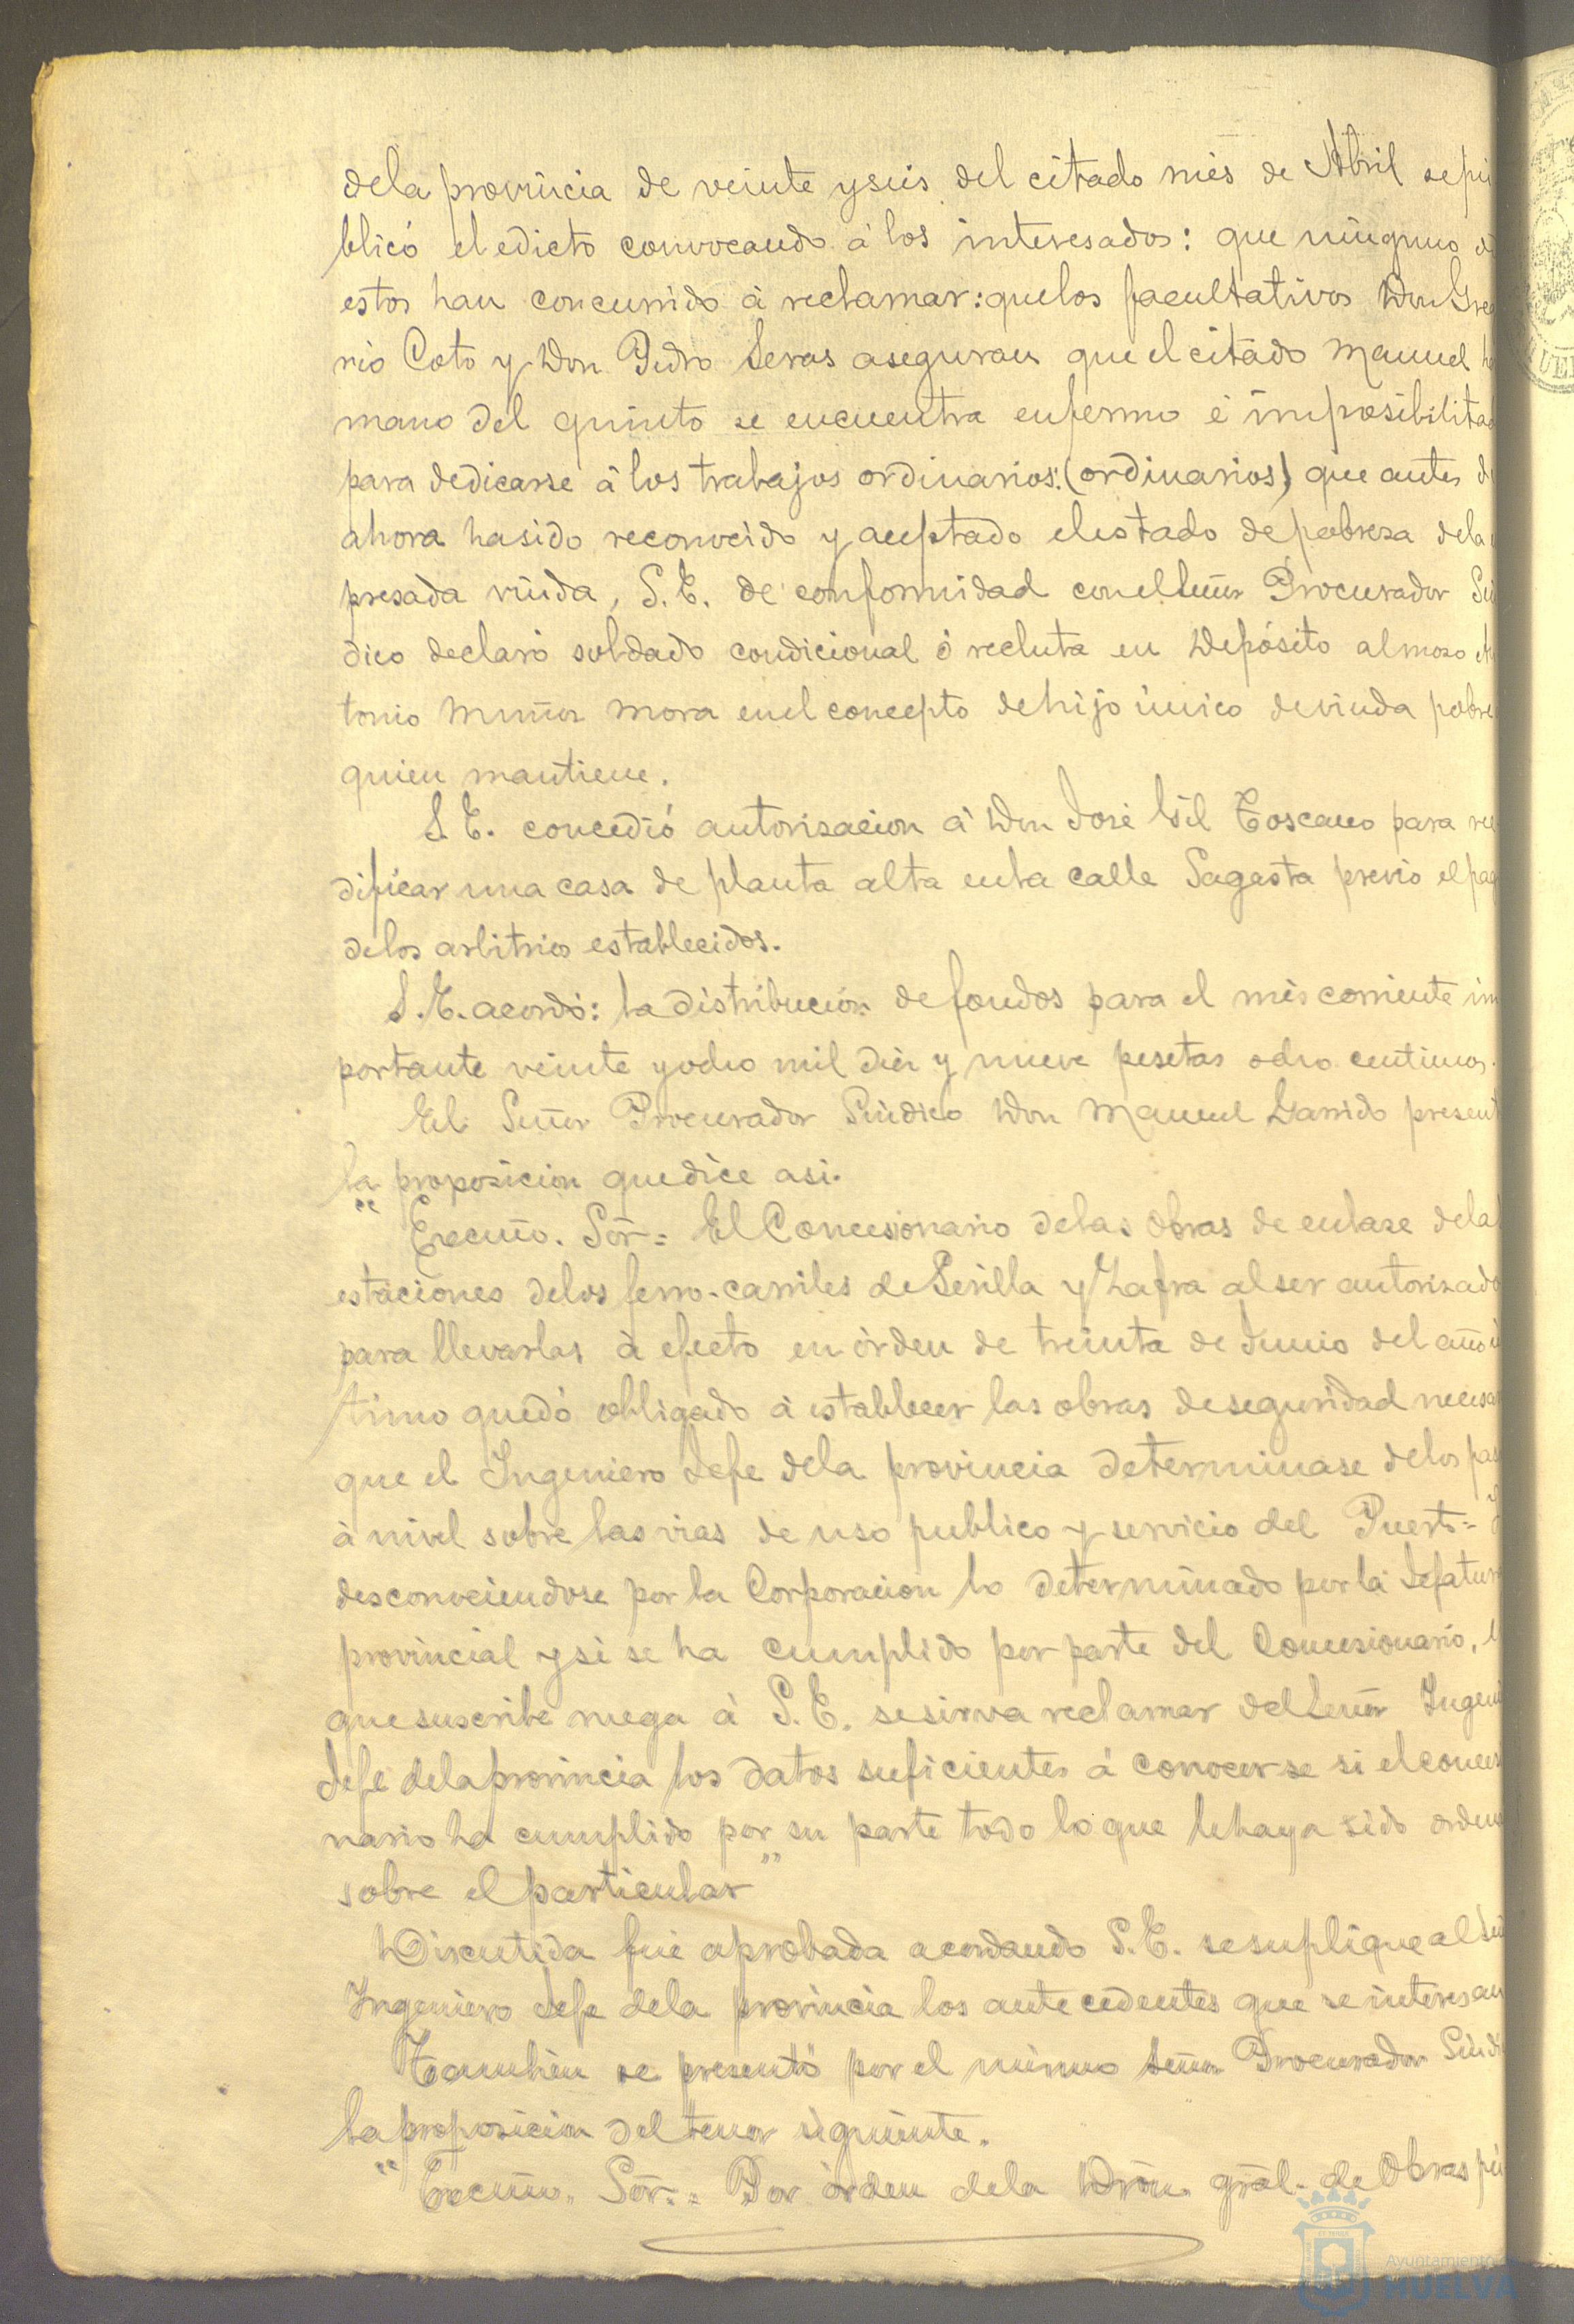 dela provincia de veinte y seis del citado mes de Abril se pú
blicó el edicto convocando á los interesados: que ninguno d
estos han concurrido á reclamar: quelos facultativos Don Gre
rio Coto y Don Pedro Seras aseguran que el citado Manuel he
mano del quinto se encuentra enfermo é imposibilitad
para dedicarse á los trabajos ordinarios: (ordinarios) que antes d
ahora hasido reconocido y aceptado elestado depobreza dela
presada viuda, S. E. de conformidad conelSeñor Procurador Sín
dico declaró soldado condicional ó recluta en Depósito almozo An
tonio Muñoz Mora enel concepto dehijo único deviuda pobre
quien mantiene.
S. E. concedió autorizacion á Don José Gil Toscano para ree
dificar una casa de planta alta enla calle Sagasta previo el pag
delos arbitrios establecidos.
S. E. acordó: la distribución defondos para el mes corriente im
portante veinte yocho mil diez y nueve pesetas ocho centimos.
El Señor Procurador Síndico Don Manuel Garrido present
la proposicion quedice asi.
" Excmo. Sor = El Concesionario delas Obras de enlaze dela
estaciones delos ferro-carriles de Sevilla y Zafra alser autorizado
para llevarlas á efecto en órden de treinta de Junio del año ú
timo quedó obligado á establecer las obras deseguridad necesa
que el Ingeniero Jefe dela provincia determinase delos pas
á nivel sobre las vias de uso publico y servicio del Puerto =
desconociendose por la Corporacion lo determinado por la Jefatura
provincial y si se ha cumplido por parte del Concesionario,
quesuscribe ruega á S. E. sesirva reclamar delSeñor Ingeni
Jefe delaprovincia los datos suficientes á conocerse si elconces
nario ha cumplido por su parte todo loque lehaya sido orden
sobre el particular"
Discutida fué aprobada acordando S. E. sesuplique al Señ
Ingeniero Jefe dela provincia los antecedentes que se interesan
Tambien se presentó por el mismo Señor Procurador Síndi
laproposicion del tenor siguiente.
" Excmo. Sor. = Por órden dela Dron. gral. de Obras pú
Ayuntamiento
HUELVA